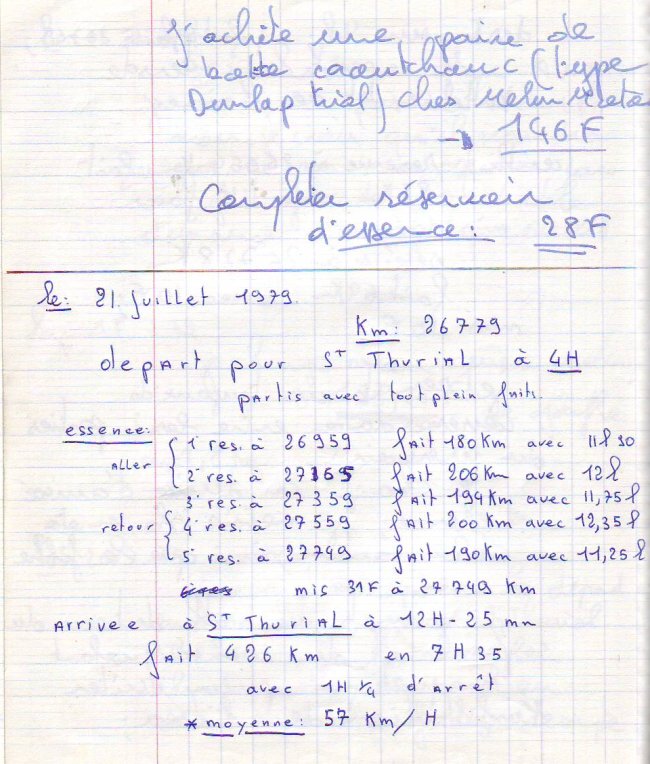 J'achète une paire de
botte caoutchouc (type
Dunlop trial) ches
→ 146 F
Completer réservoir
d'essence: 28 F
le: 21 Juillet 1979.
Km: 26779
depart pour St ThuriaL à 4H
partis avec tout plein faits.
essence:
ALLer
1° res. à 26959 fait 180 Km avec 11l 30
2° res. à 27165 fait 206 Km avec 12l
3° res. à 27359 fait 194 Km avec 11,75l
retour
4° res. à 27559 fait 200 Km avec 12,35l
5° res. à 27749 fait 190 Km avec 11,25l
mis 31F à 27749 Km
Arrivee à St ThuriaL à 12H-25 mn
fait 426 Km en 7H35
avec 1H 1/4 d'Arrêt
* moyenne: 57 Km/H